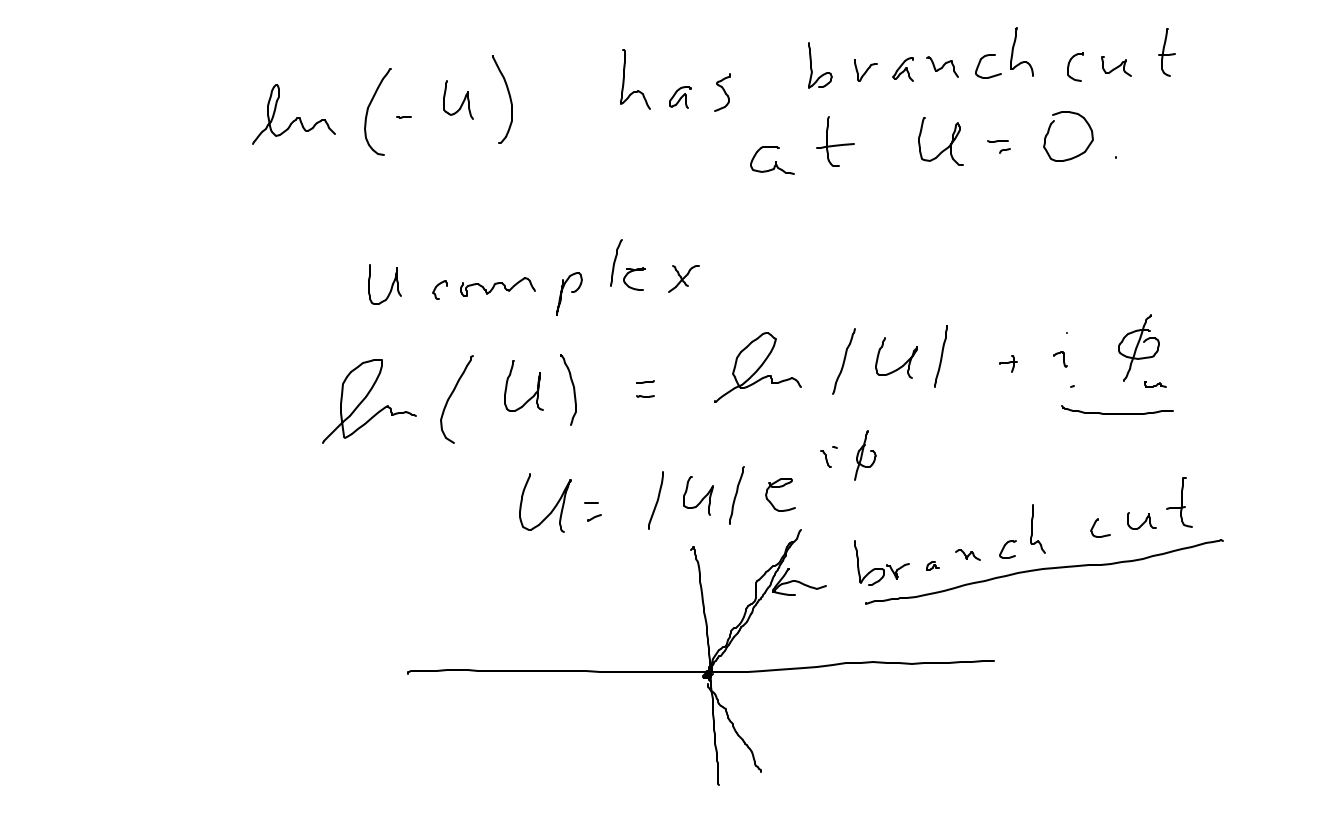 ln(-u) has branch cut
at u=0.
u complex
ln(u) = ln|u| + i ϕ_u
u=|u|e^{iϕ}
branch cut